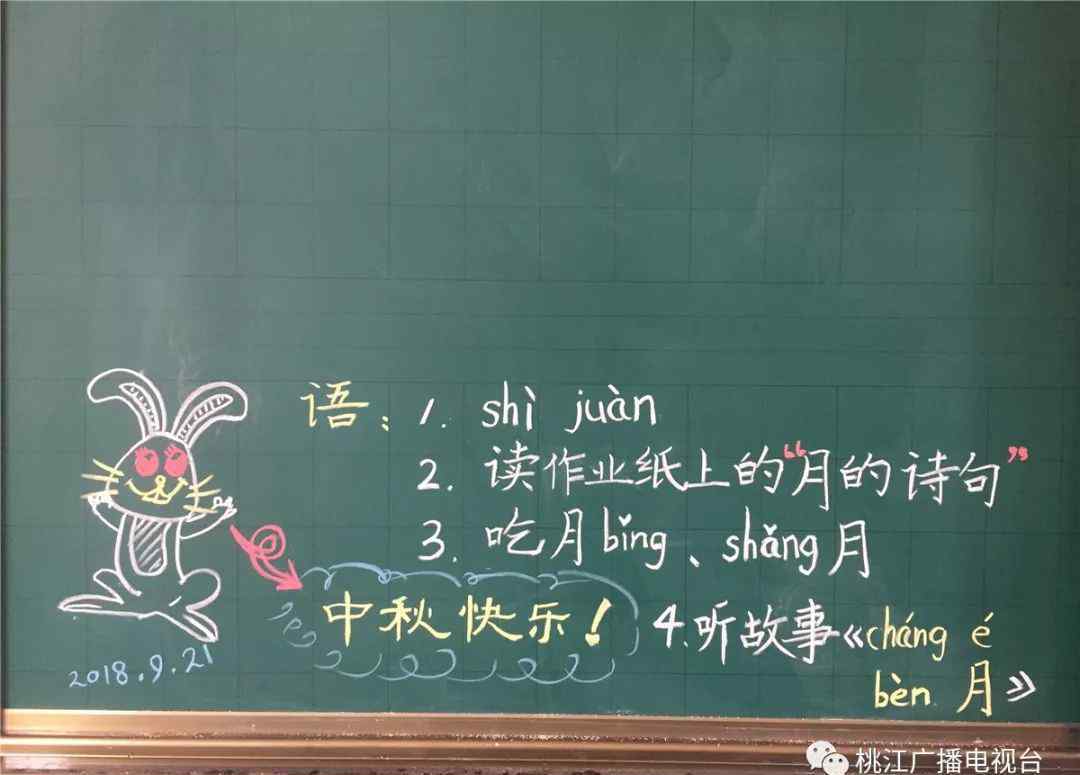 语：1. shì juàn
2. 读作业纸上的“月的诗句”
3. 吃月bǐng、shǎng月
中秋快乐！
4.听故事《cháng é
bèn 月》
2018.9.21
桃江广播电视台